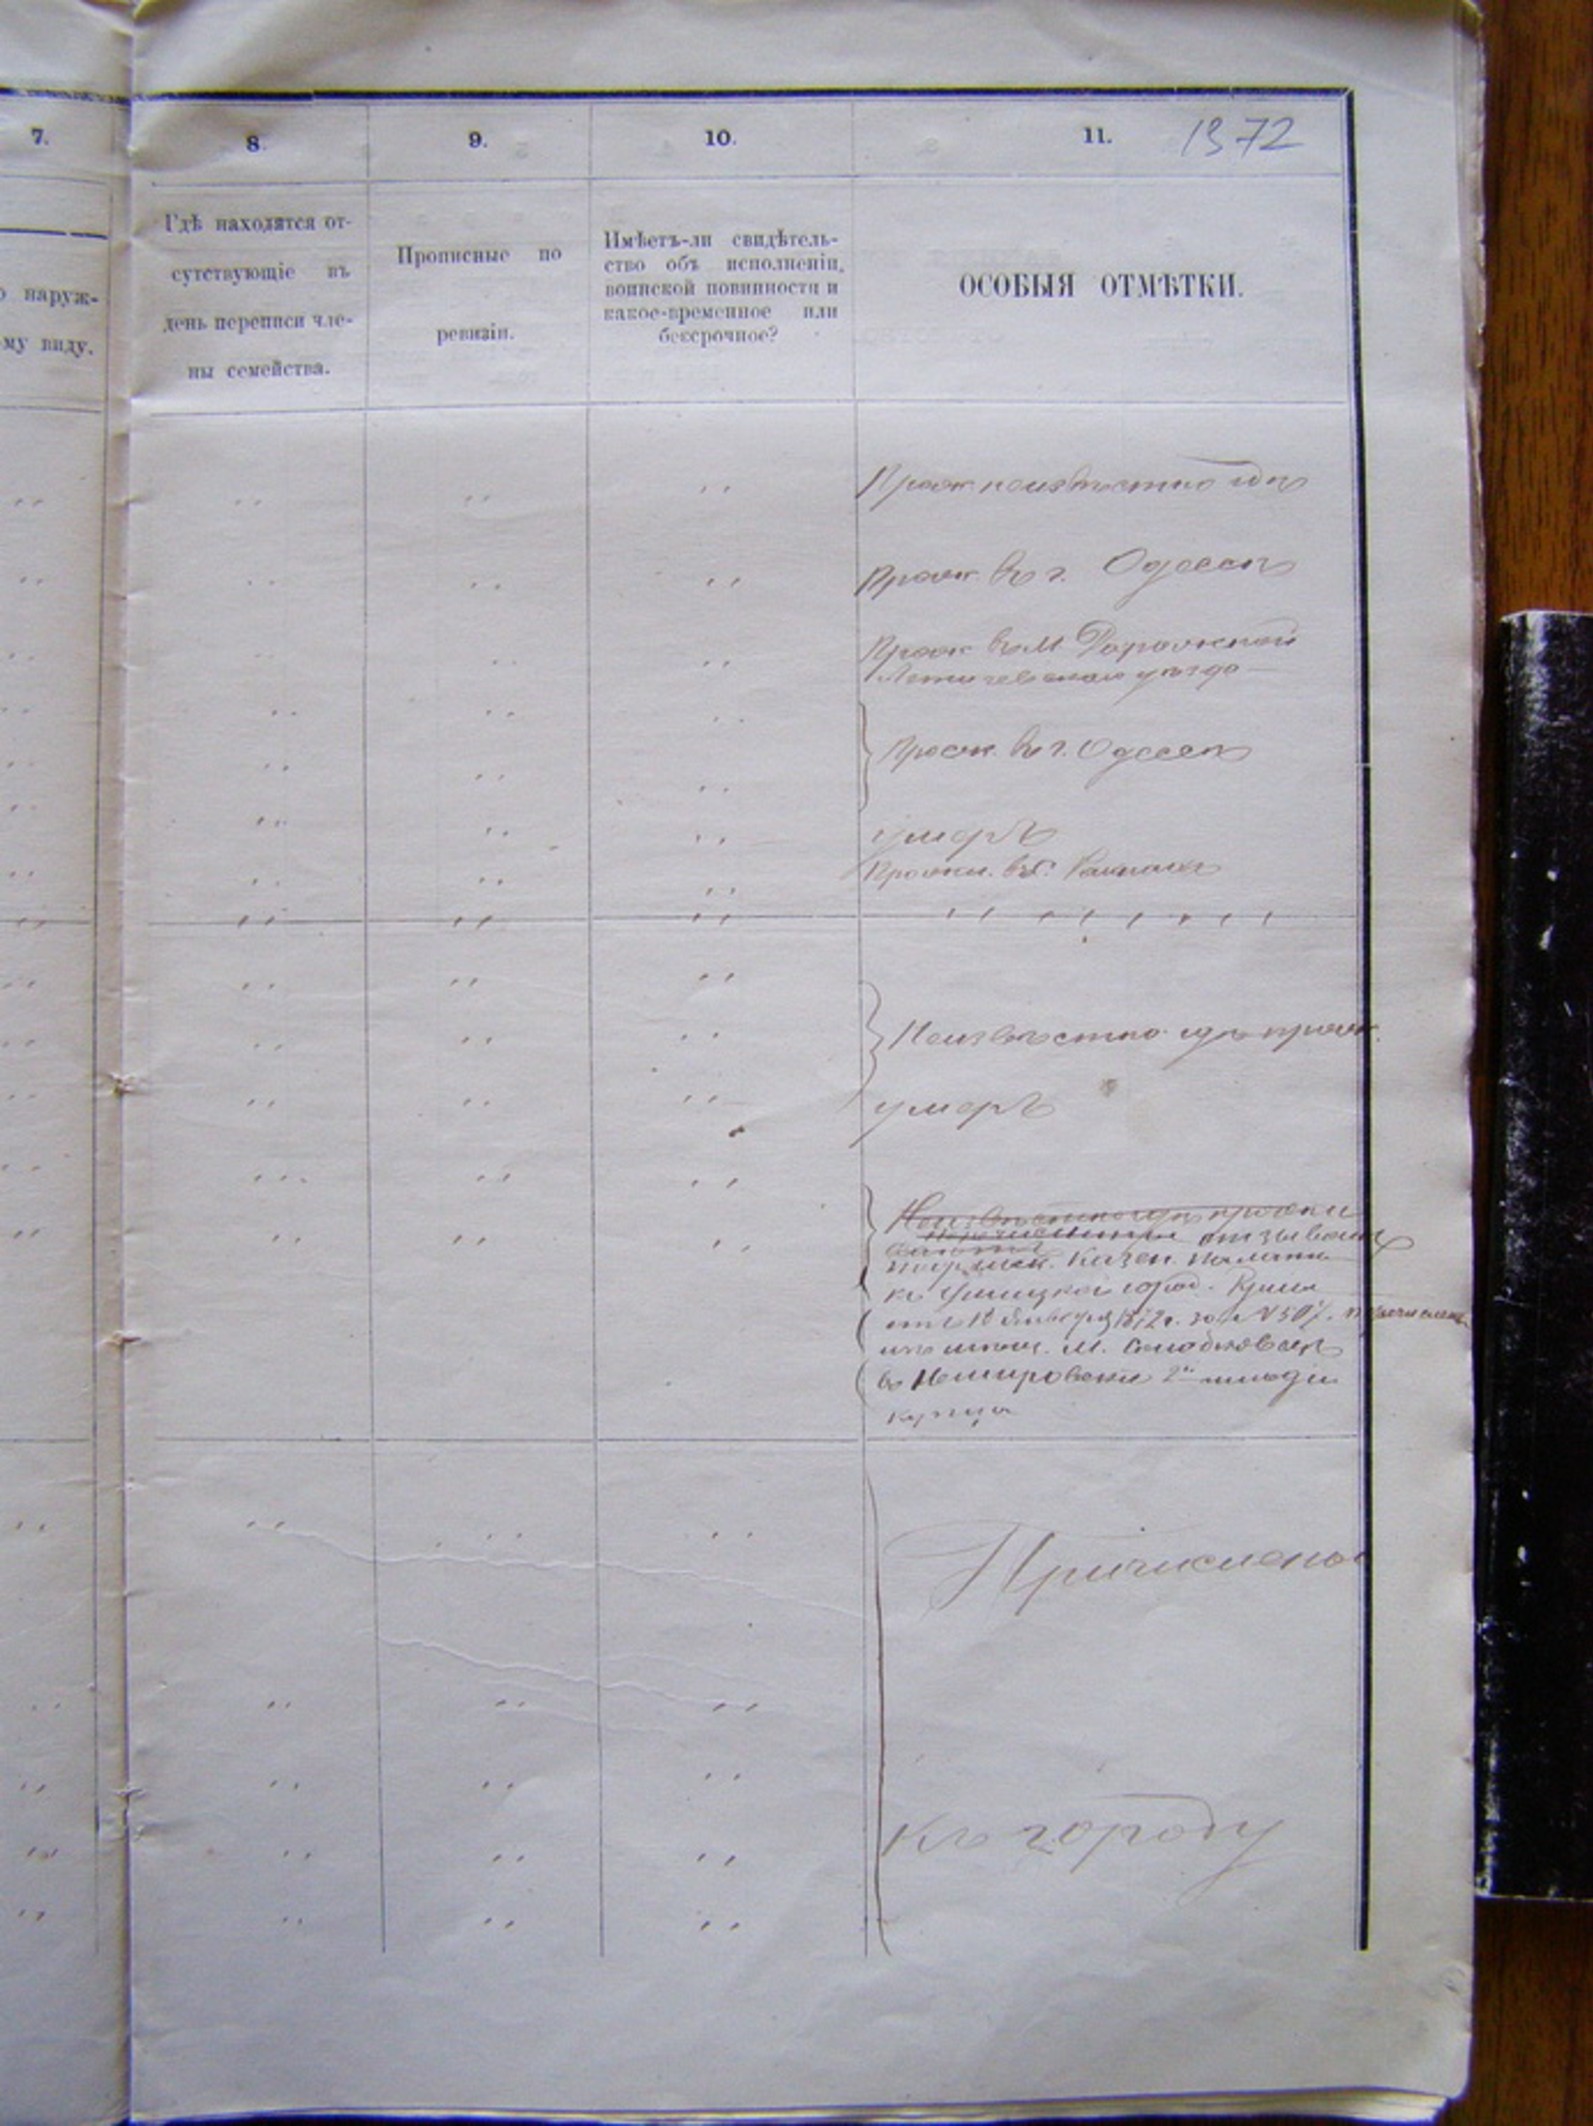 7.
8.
9.
10.
11.
1372
о наруж-
му виду.
Гдѣ находятся от-
сутствующіе въ
день переписи чле-
ны семейства.
Прописные по
ревизіи.
Имѣетъ-ли свидѣтель-
ство объ исполненіи
воинской повинности и
какое-временное или
безсрочное?
ОСОБЫЯ ОТМѢТКИ.
Прож неизвѣстно гдѣ
Прож. въ г. Одессѣ
Прож въ м
Летичевскаго уѣзда
Прож. въ г. Одессѣ
умеръ
Прожи. въ г.
Неизвѣстно гдѣ прож.
умеръ
Неизвѣстно гдѣ прожи
казен. палаты
к город.
от 18 Января 1872 г. за № 507.
м.
в Немировски 2й гильдіи
купца
Причислены
къ городу